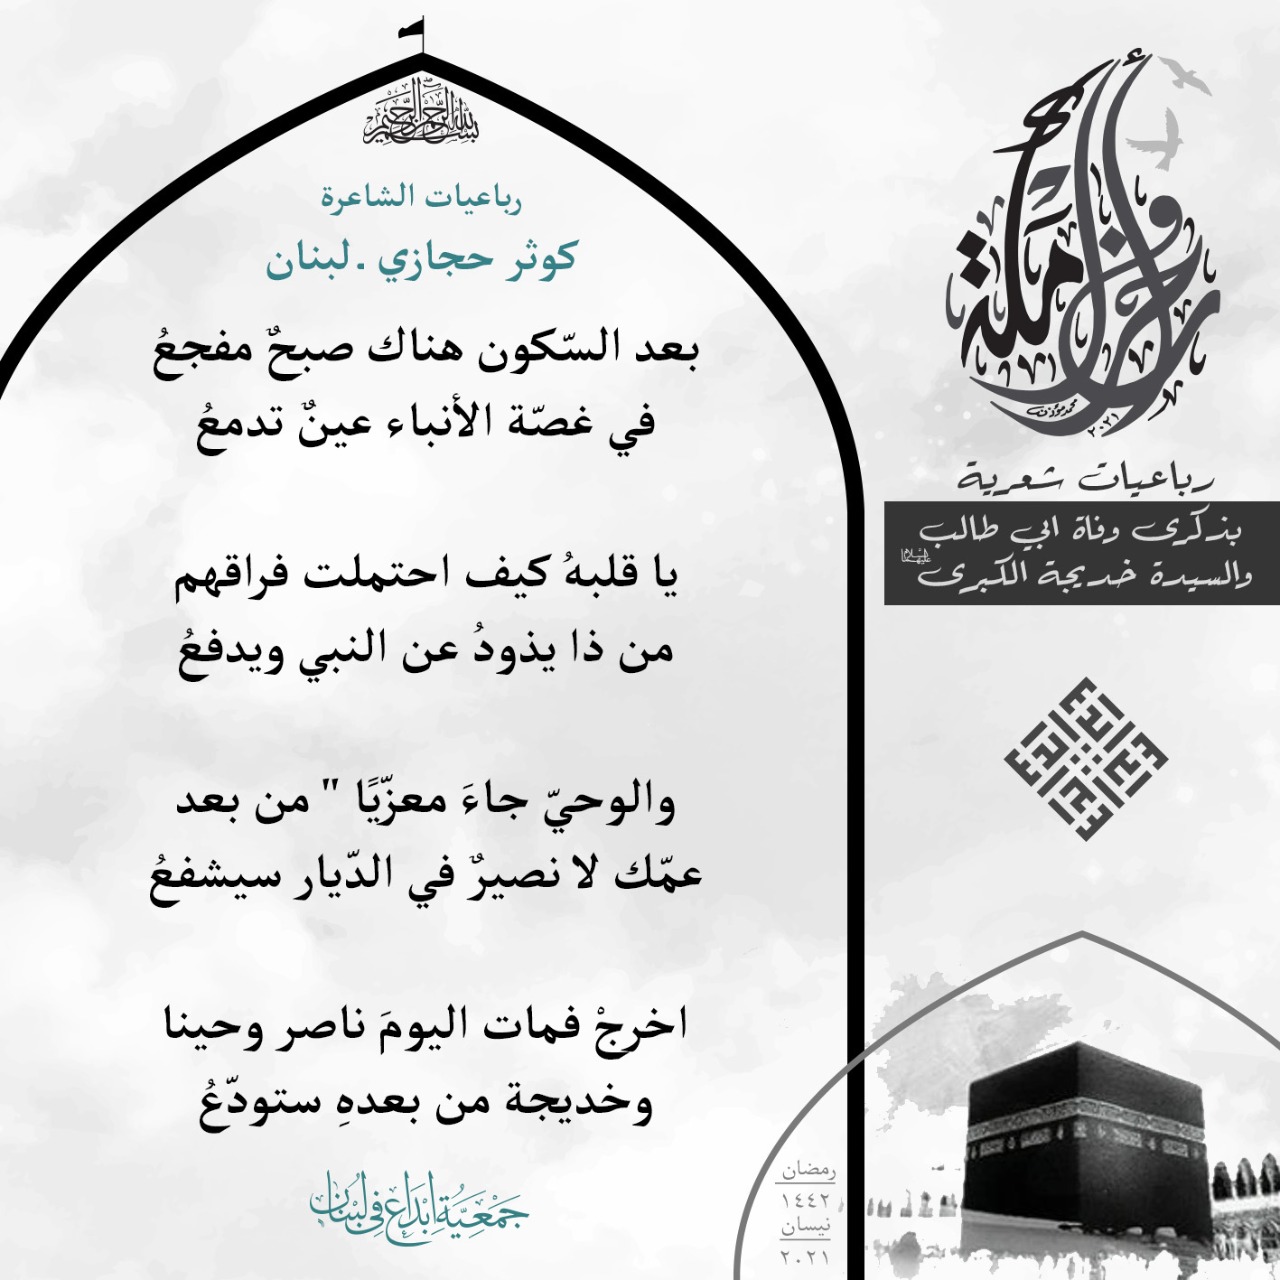 بسم الله الرحمن الرحيم
رباعيات الشاعرة
كوثر حجازي ـ لبنان
بعد السّكون هناك صبحٌ مفجعُ
في غصّة الأنباء عينٌ تدمعُ
يا قلبهُ كيف احتملت فراقهم
من ذا يذودُ عن النبي ويدفعُ
والوحيّ جاءَ معزّيًا " من بعد
عمّك لا نصيرٌ في الدّيار سيشفعُ
اخرجْ فمات اليومَ ناصر وحينا
وخديجة من بعدهِ ستودّعُ
جَمْعِيَّةُ إبْدَاع فِي لُبْنَان
محمد مؤذن
٢٠٢١
رباعيات شعرية
بذكرى وفاة ابي طالب
والسيدة خديجة الكبرى عليهما السلام
رمضان
١٤٤٢
نيسان
٢٠٢١